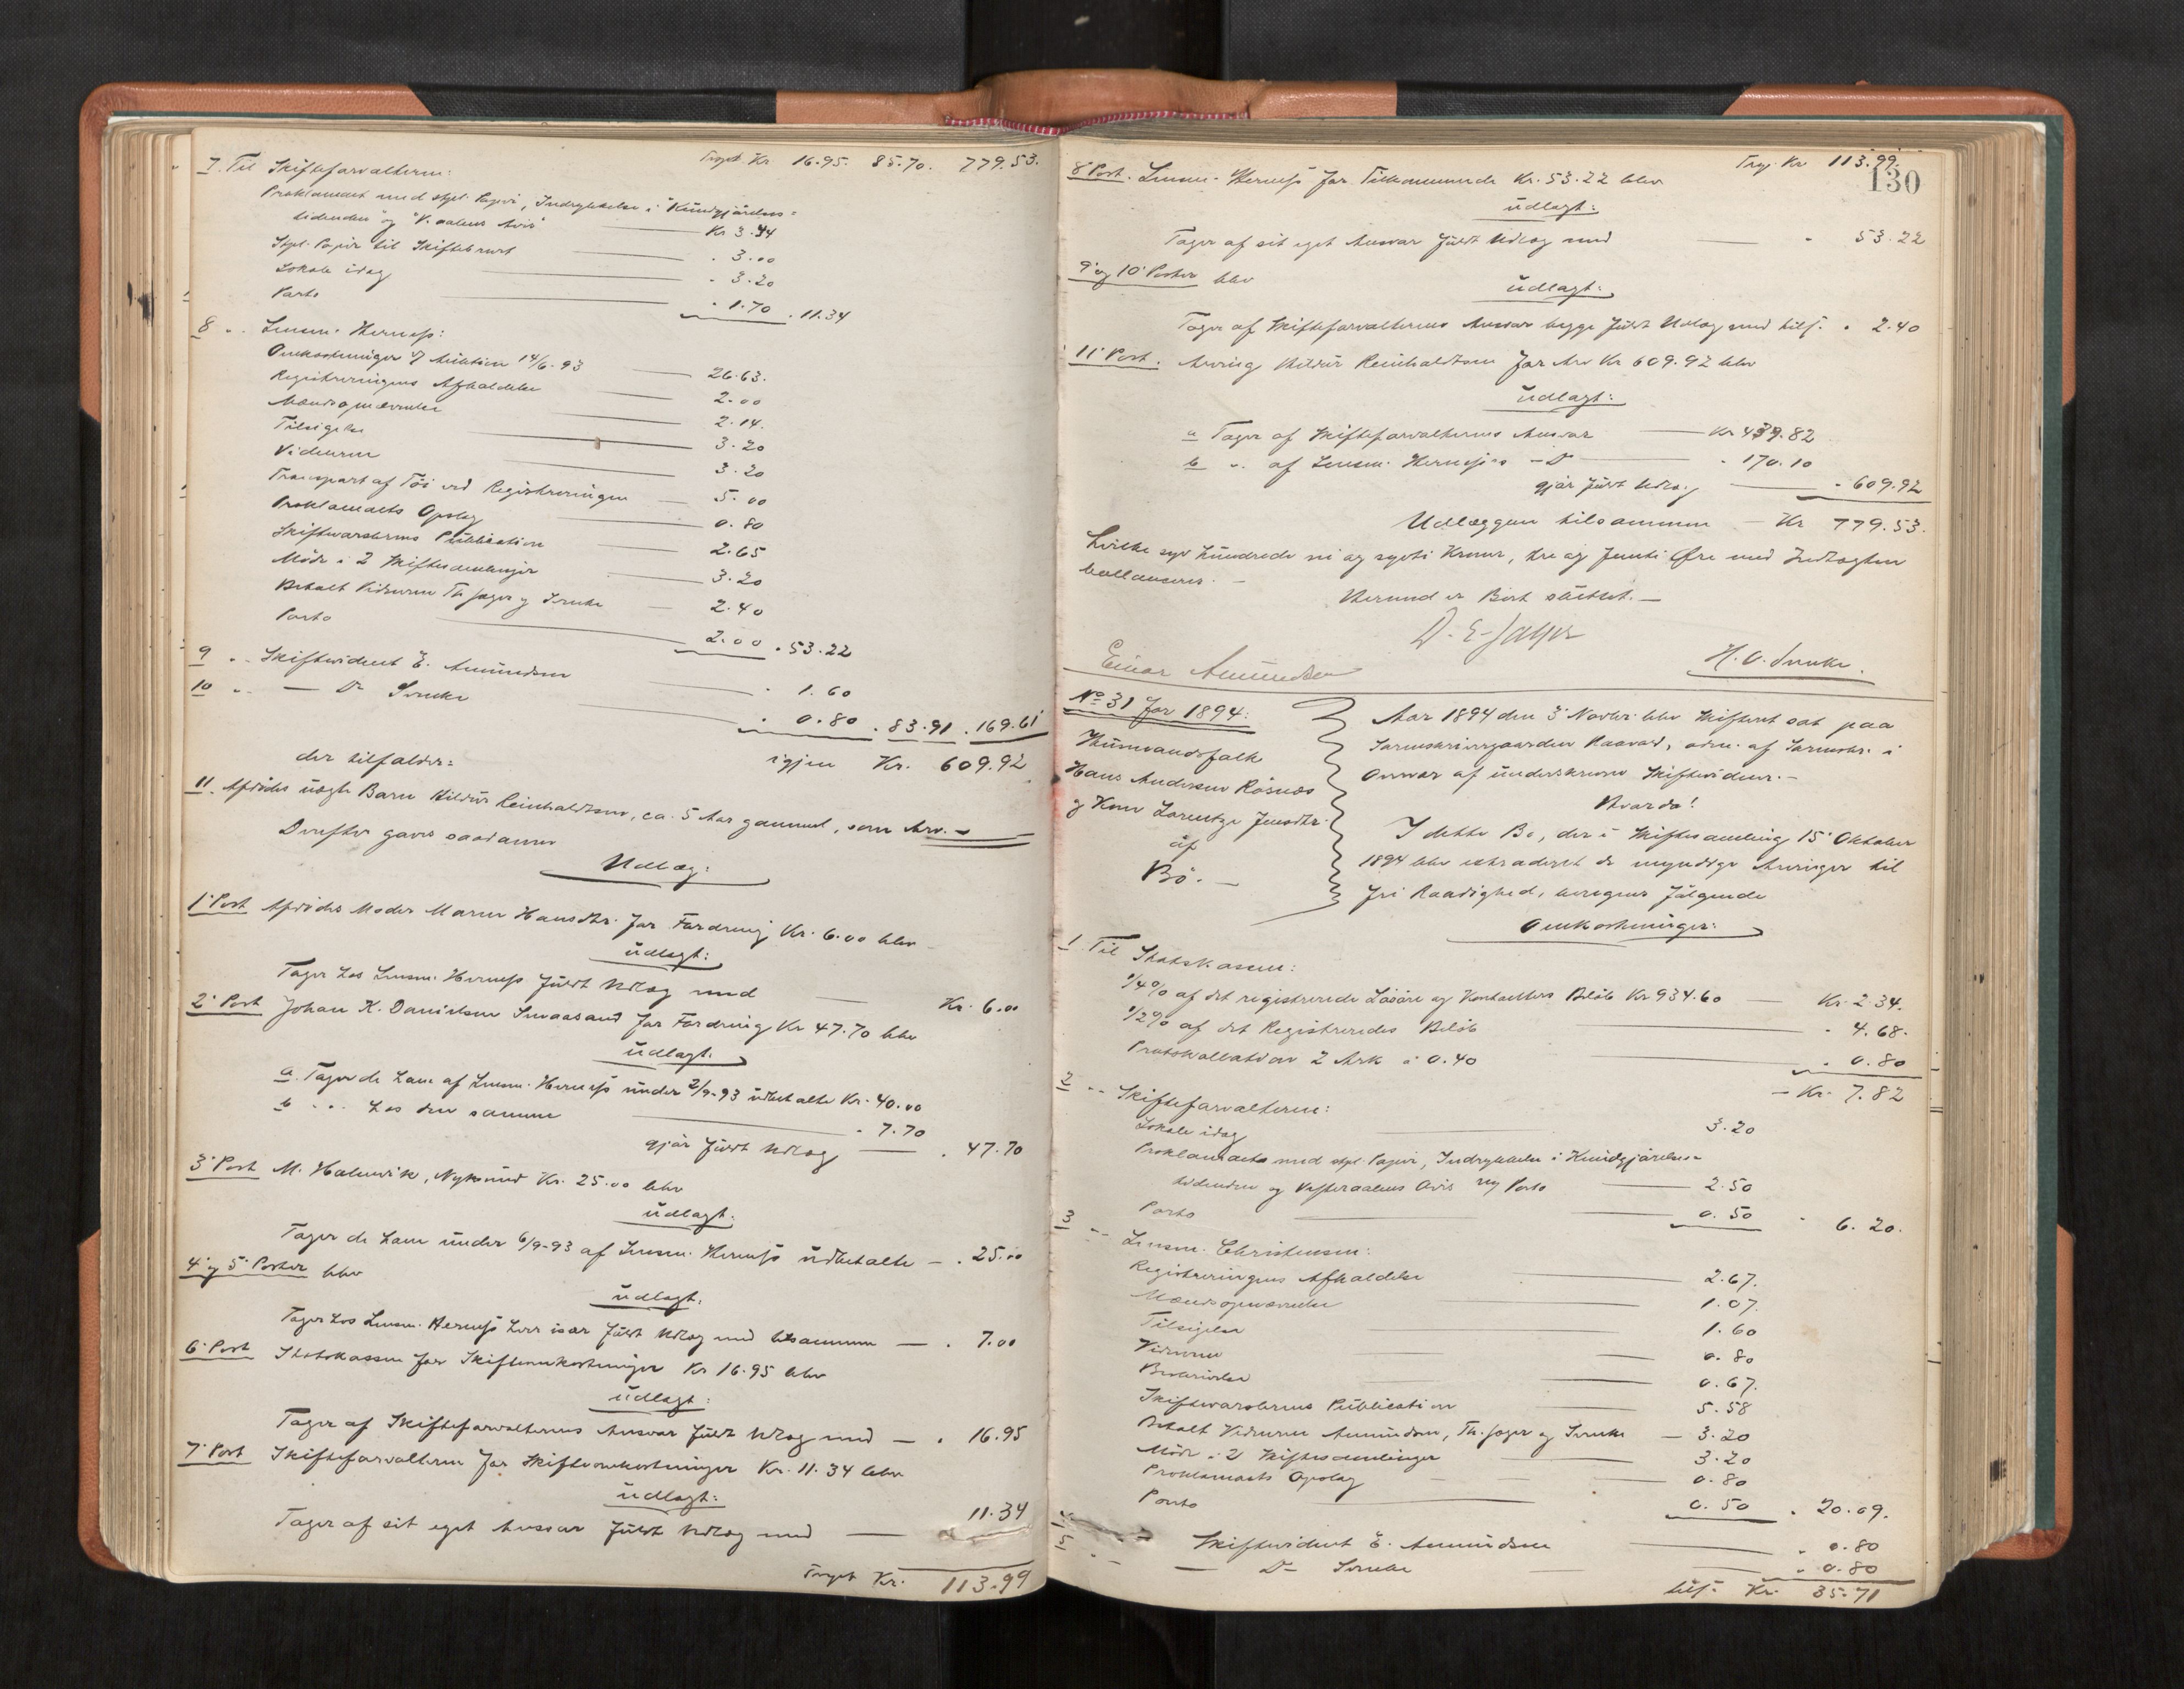 Trspt. Kr 16.95. 85.70. 779.53.
7. Til Skifteforvalteren:
Proklamaet med stpl. Papir, Indrykkelse i "Kundgjørelses=
tidenden" og "V.aalens Avis" Kr 3.44
Stpl. Papir til Skiftebrevet . 3.00
Lokale idag . 3.20
Porto . 1.70 . 11.34
8 " . Lensm. Hernæss:
Omkostninger v/ Auktion 14/6-93 26.63.
Registreringens Afholdelse 2.00
Mændsopnævnelse 2.14.
Tilsigelse 3.20
Vidnerne 3.20
Transport af Töi ved Registreringen 5.00
Proklamaets Opslag 0.80
Skiftevarslernes Publication 2.65
Möde i 2 Skiftesamlinger 3.20
Betalt Vidnerne Th. Jager og Svenke 2.40
Porto 2.00 . 53.22
9 " . Skiftevidnet E. Amundsen . 1.60
10 " . — Do Svenke . 0.80 . 83.91 . 169.61
igjen Kr. 609.92
der tilfalder:
11. Afdödes uægte Barn Hildur Reinholdtsen, ca. 5 Aar gammel, som Arv. —
Derefter gaves saadanne
Udlæg:
1' Post Afdödes Moder Maren Hansdtr. for Fordring Kr. 6.00 blev
udlagt:
Tager hos Lensm. Hernæss fuldt Udlæg med — Kr. 6.00
2' Post Johan K. Danielsen for Fordring Kr 47.70 blev
udlagt.
a. Tager de ham af Lensm. Hernæss under 2/9-93 udbetalte Kr. 40.00
b " . hos den samme . 7.70
gjör fuldt Udlæg — . 47.70
3' Post M. Holmvik, Nyksund Kr. 25.00 blev
udlagt:
Tager de ham under 6/9-93 af Lensm. Hernæss udbetalte — . 25.00
4' og 5' Poster blev
udlagt:
Tager hos Lensm. Hernæss hver især fuldt Udlæg med tilsammen — . 7.00
6' Post Statskassen for Skifteomkostninger Kr 16.95 blev
udlagt:
Tager af Skifteforvalterens Ansvar fuldt Udlæg med — . 16.95
7' Post Skifteforvalteren for Skifteomkostninger Kr. 11.34 blev
udlagt:
Tager af sit eget Ansvar fuldt Udlæg med — 11.34
Trspt Kr. 113.99
Trsp. Kr 113.99.
130
8' Post. Lensm. Hernæss for Tilkommende Kr. 53.22 blev
udlagt:
Tager af sit eget Ansvar fuldt Udlæg med — . 53.22
9' og 10' Poster blev
udlagt:
Tager af Skifteforvalterens Ansvar begge fuldt Udlæg med tils. . 2.40
11' Post. Arving Hildur Reinholdtsen for Arv Kr 609.92 blev
udlagt:
a Tager af Skifteforvalterens Ansvar — Kr 439.82
b " . af Lensm. Hernæsses — Do — . 170.10
gjör fuldt Udlæg — . 609.92
Udlæggene tilsammen — Kr 779.53.
hvilke syv hundrede ni og sytti Kroner, tre og femti Øre med Indtægten
ballancerer. —
Hermed er Boet sluttet. —
D. E. Jager
Einar Amundsen
H. O. Svenke.
No 31 for 1894:
Husmandsfolk
Hans Andersen Rösnæs
og Kone Lorentze Jensdtr.
af
Bö. —
Aar 1894 den 3' Novbr. blev Skifteret sat paa
Sorenskrivergaarden Raavad, adm. af Sorenskr. i
Overvær af underskrevne Skiftevidner. —
Hvorda!
I dette Bo, der i Skiftesamling 15' Oktober
1894 blev extraderet de myndige Arvinger til
fri Raadighed, beregnes fölgende
Omkostninger:
1. Til Statskassen:
1/4% af det registrerede Lösöre og Kontanters Belöb Kr 934.60 — Kr. 2.34.
1/2% af det Registreredes Belöb . 4.68.
Protokollation 2 Ark à 0.40 . 0.80
— Kr. 7.82
2 " . Skifteforvalteren:
Lokale idag 3.20
Proklamaets med stpl. Papir, Indrykkelse i Kundgjörelses=
tidenden og Vesteraalens Avis og Porto 2.50
Porto 0.50 . 6.20.
3 " . Lensm. Christensen:
Registreringens Afholdelse 2.67.
Mændsopnævnelse 1.07.
Tilsigelse 1.60
Vidnerne 0.80
Beskrivelse 0.67.
Skiftevarslernes Publication 5.58
Betalt Vidnerne Amundsen, Th. Jager og Svenke — 3.20
Möde i 2 Skiftesamlinger 3.20
Proklamaets Opslag 0.80
Porto 0.50 . 20.09.
Skiftevidnet E. Amundsen . 0.80
5 " . — Do — Svenke . 0.80
tils. Kr. 35.71